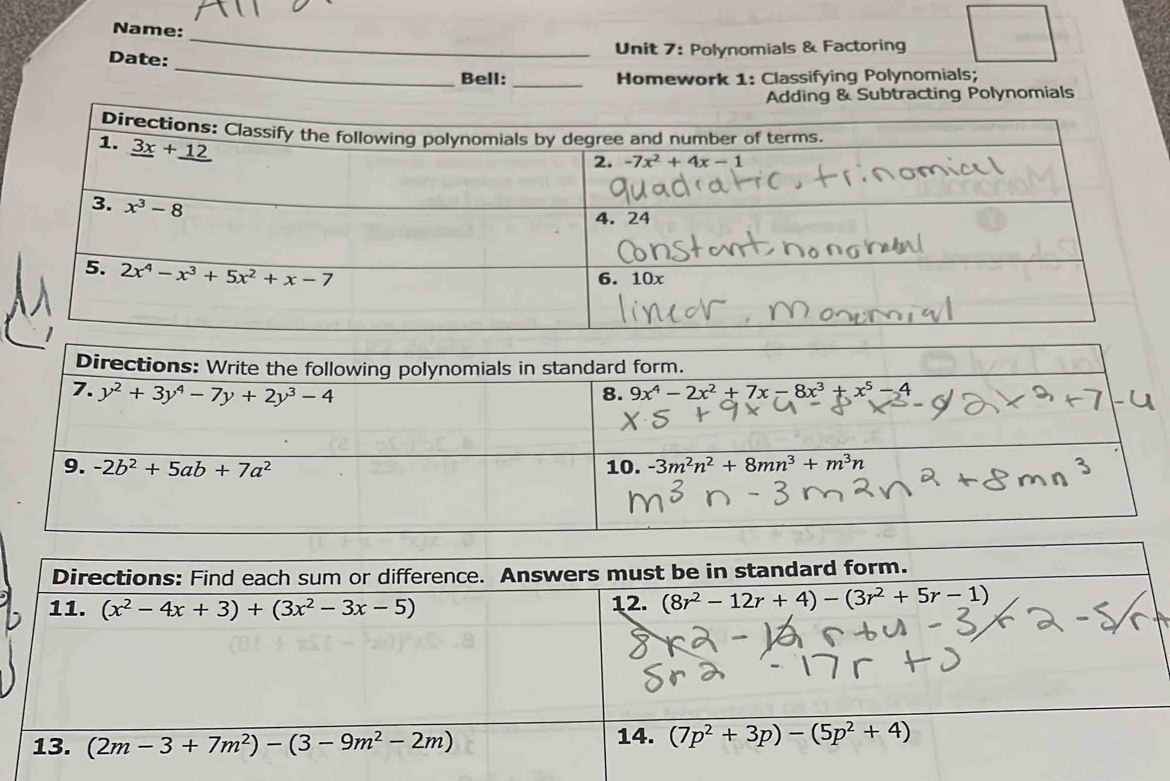 All
Name:
Unit 7: Polynomials & Factoring
Date:
Bell:
Homework 1: Classifying Polynomials;
Adding & Subtracting Polynomials
Directions: Classify the following polynomials by degree and number of terms.
1. 3x + 12
2. -7x² + 4x - 1
quadratic, trinomial
3. x³ - 8
4. 24
Constant,
5. 2x⁴ - x³ + 5x² + x - 7
6. 10x
linear, monomial
Directions: Write the following polynomials in standard form.
7. y² + 3y⁴ - 7y + 2y³ - 4
8. 9x⁴ - 2x² + 7x - 8x³ + x⁵ - 4
x5 + 9x4 - 8x3 - 2x2 + 7 - 4
9. -2b² + 5ab + 7a²
10. -3m²n² + 8mn³ + m³n
m³n - 3m2n² + 8mn³
Directions: Find each sum or difference. Answers must be in standard form.
11. (x² - 4x + 3) + (3x² - 3x - 5)
12. (8r² - 12r + 4) - (3r² + 5r - 1)
8r2 - 12r + 4 - 3r2 - 5r +
5r2 - 17r +
13. (2m - 3 + 7m²) - (3 - 9m² - 2m)
14. (7p² + 3p) - (5p² + 4)